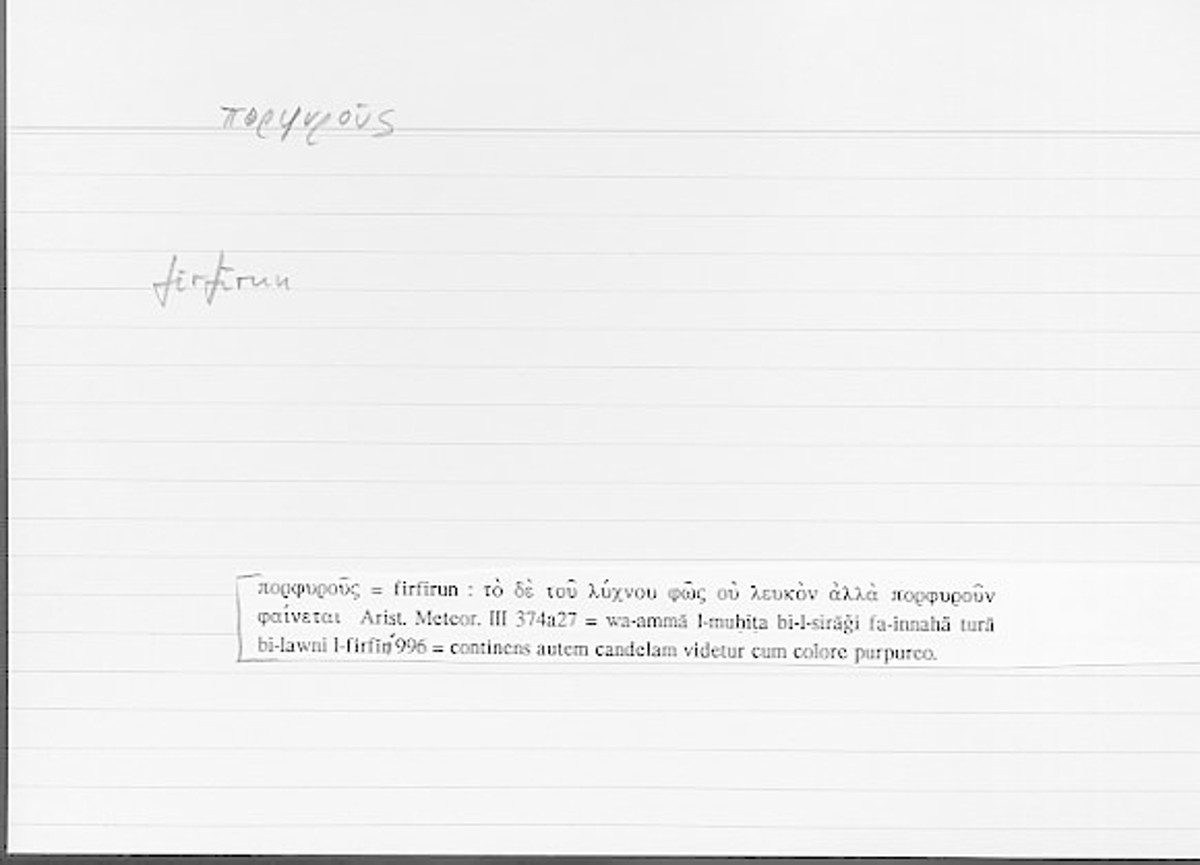 πορφυροῦς
firfīrun
πορφυροῦς = firfīrun : τὸ δὲ τοῦ λύχνου φῶς οὐ λευκὸν ἀλλὰ πορφυροῦν
φαίνεται Arist. Meteor. III 374a27 = wa-ammā l-muḥīṭa bi-l-sirāǧi fa-innahā turā
bi-lawni l-firfīri 996 = continens autem candelam videtur cum colore purpureo.